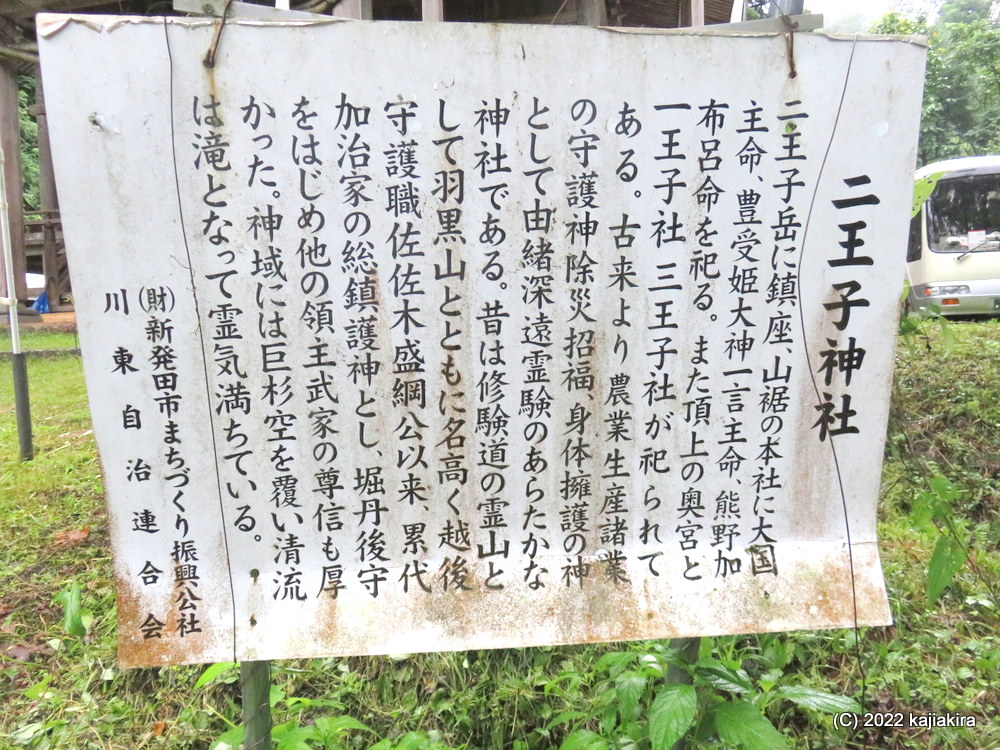 二王子神社
二王子岳に鎮座、山裾の本社に大国
主命、豊受姫大神一言主命、熊野加
布呂命を祀る。また頂上の奥宮と
一王子社 三王子社が祀られて
ある。古来より農業生産諸業
の守護神除災招福、身体擁護の神
として由緒深遠霊験のあらたかな
神社である。昔は修験道の霊山と
して羽黒山とともに名高く越後
守護職佐佐木盛綱公以来、累代
加治家の総鎮護神とし、堀丹後守
をはじめ他の領主武家の尊信も厚
かった。神域には巨杉空を覆い清流
は滝となって霊気満ちている。
(財)新発田市まちづくり振興公社
川東自治連合会
(C) 2022 kajiakira